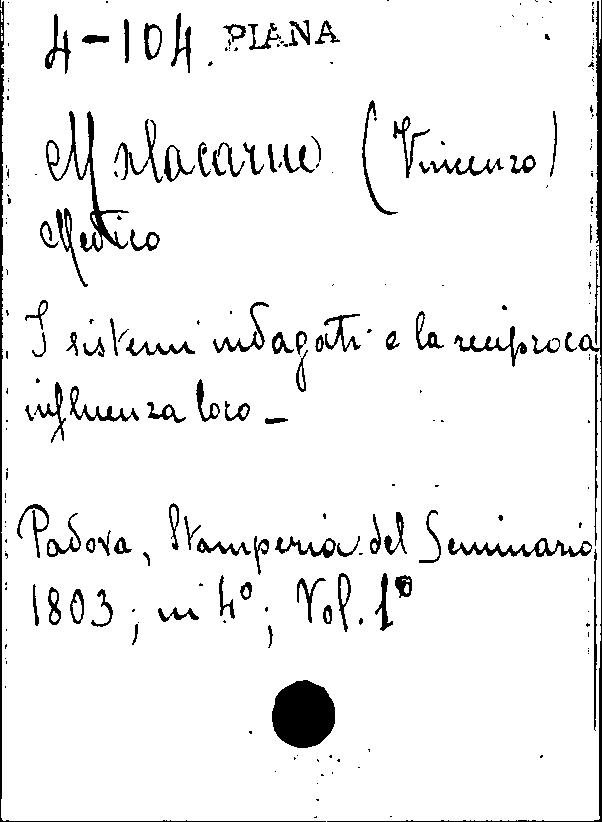 4-104. PIANA
Malacarne (Vincenzo)
Medico
I sistemi indagati e la reciproca
influenza loro -
Padova, Stamperia del Seminario
1803; in 4º; Vol. 1º